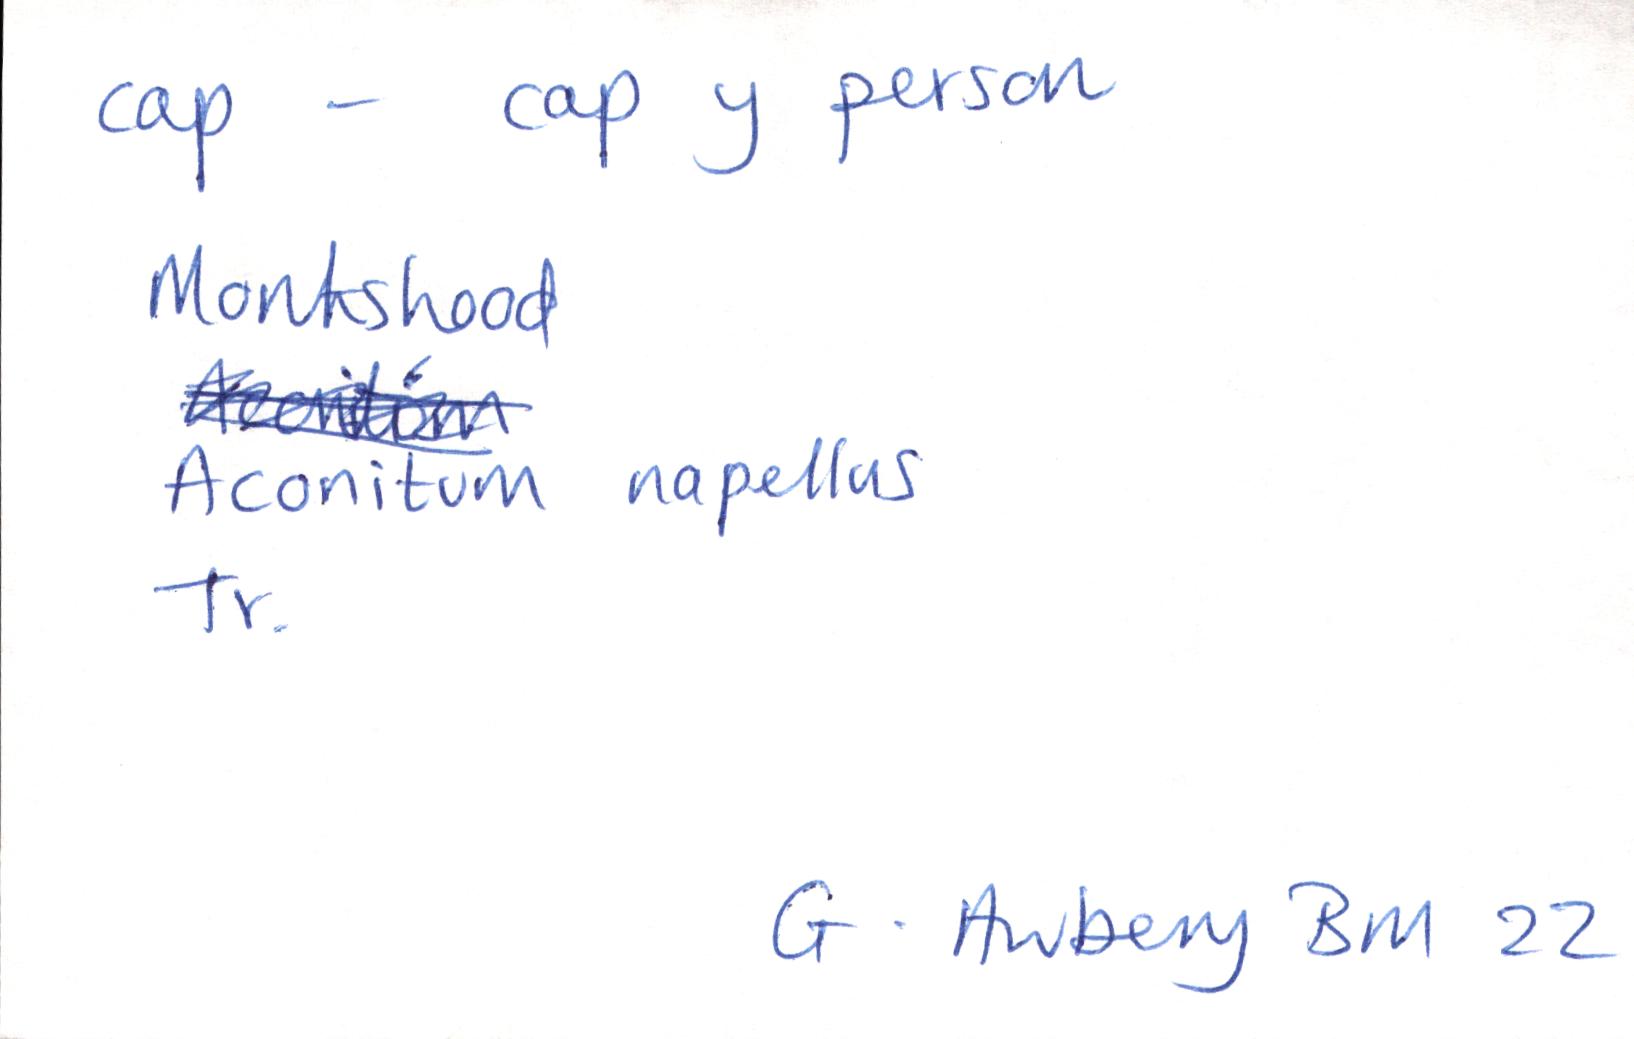 cap - cap y person
Monkshood
Aconitum napellus
Tr.
G. Awbery BM 22